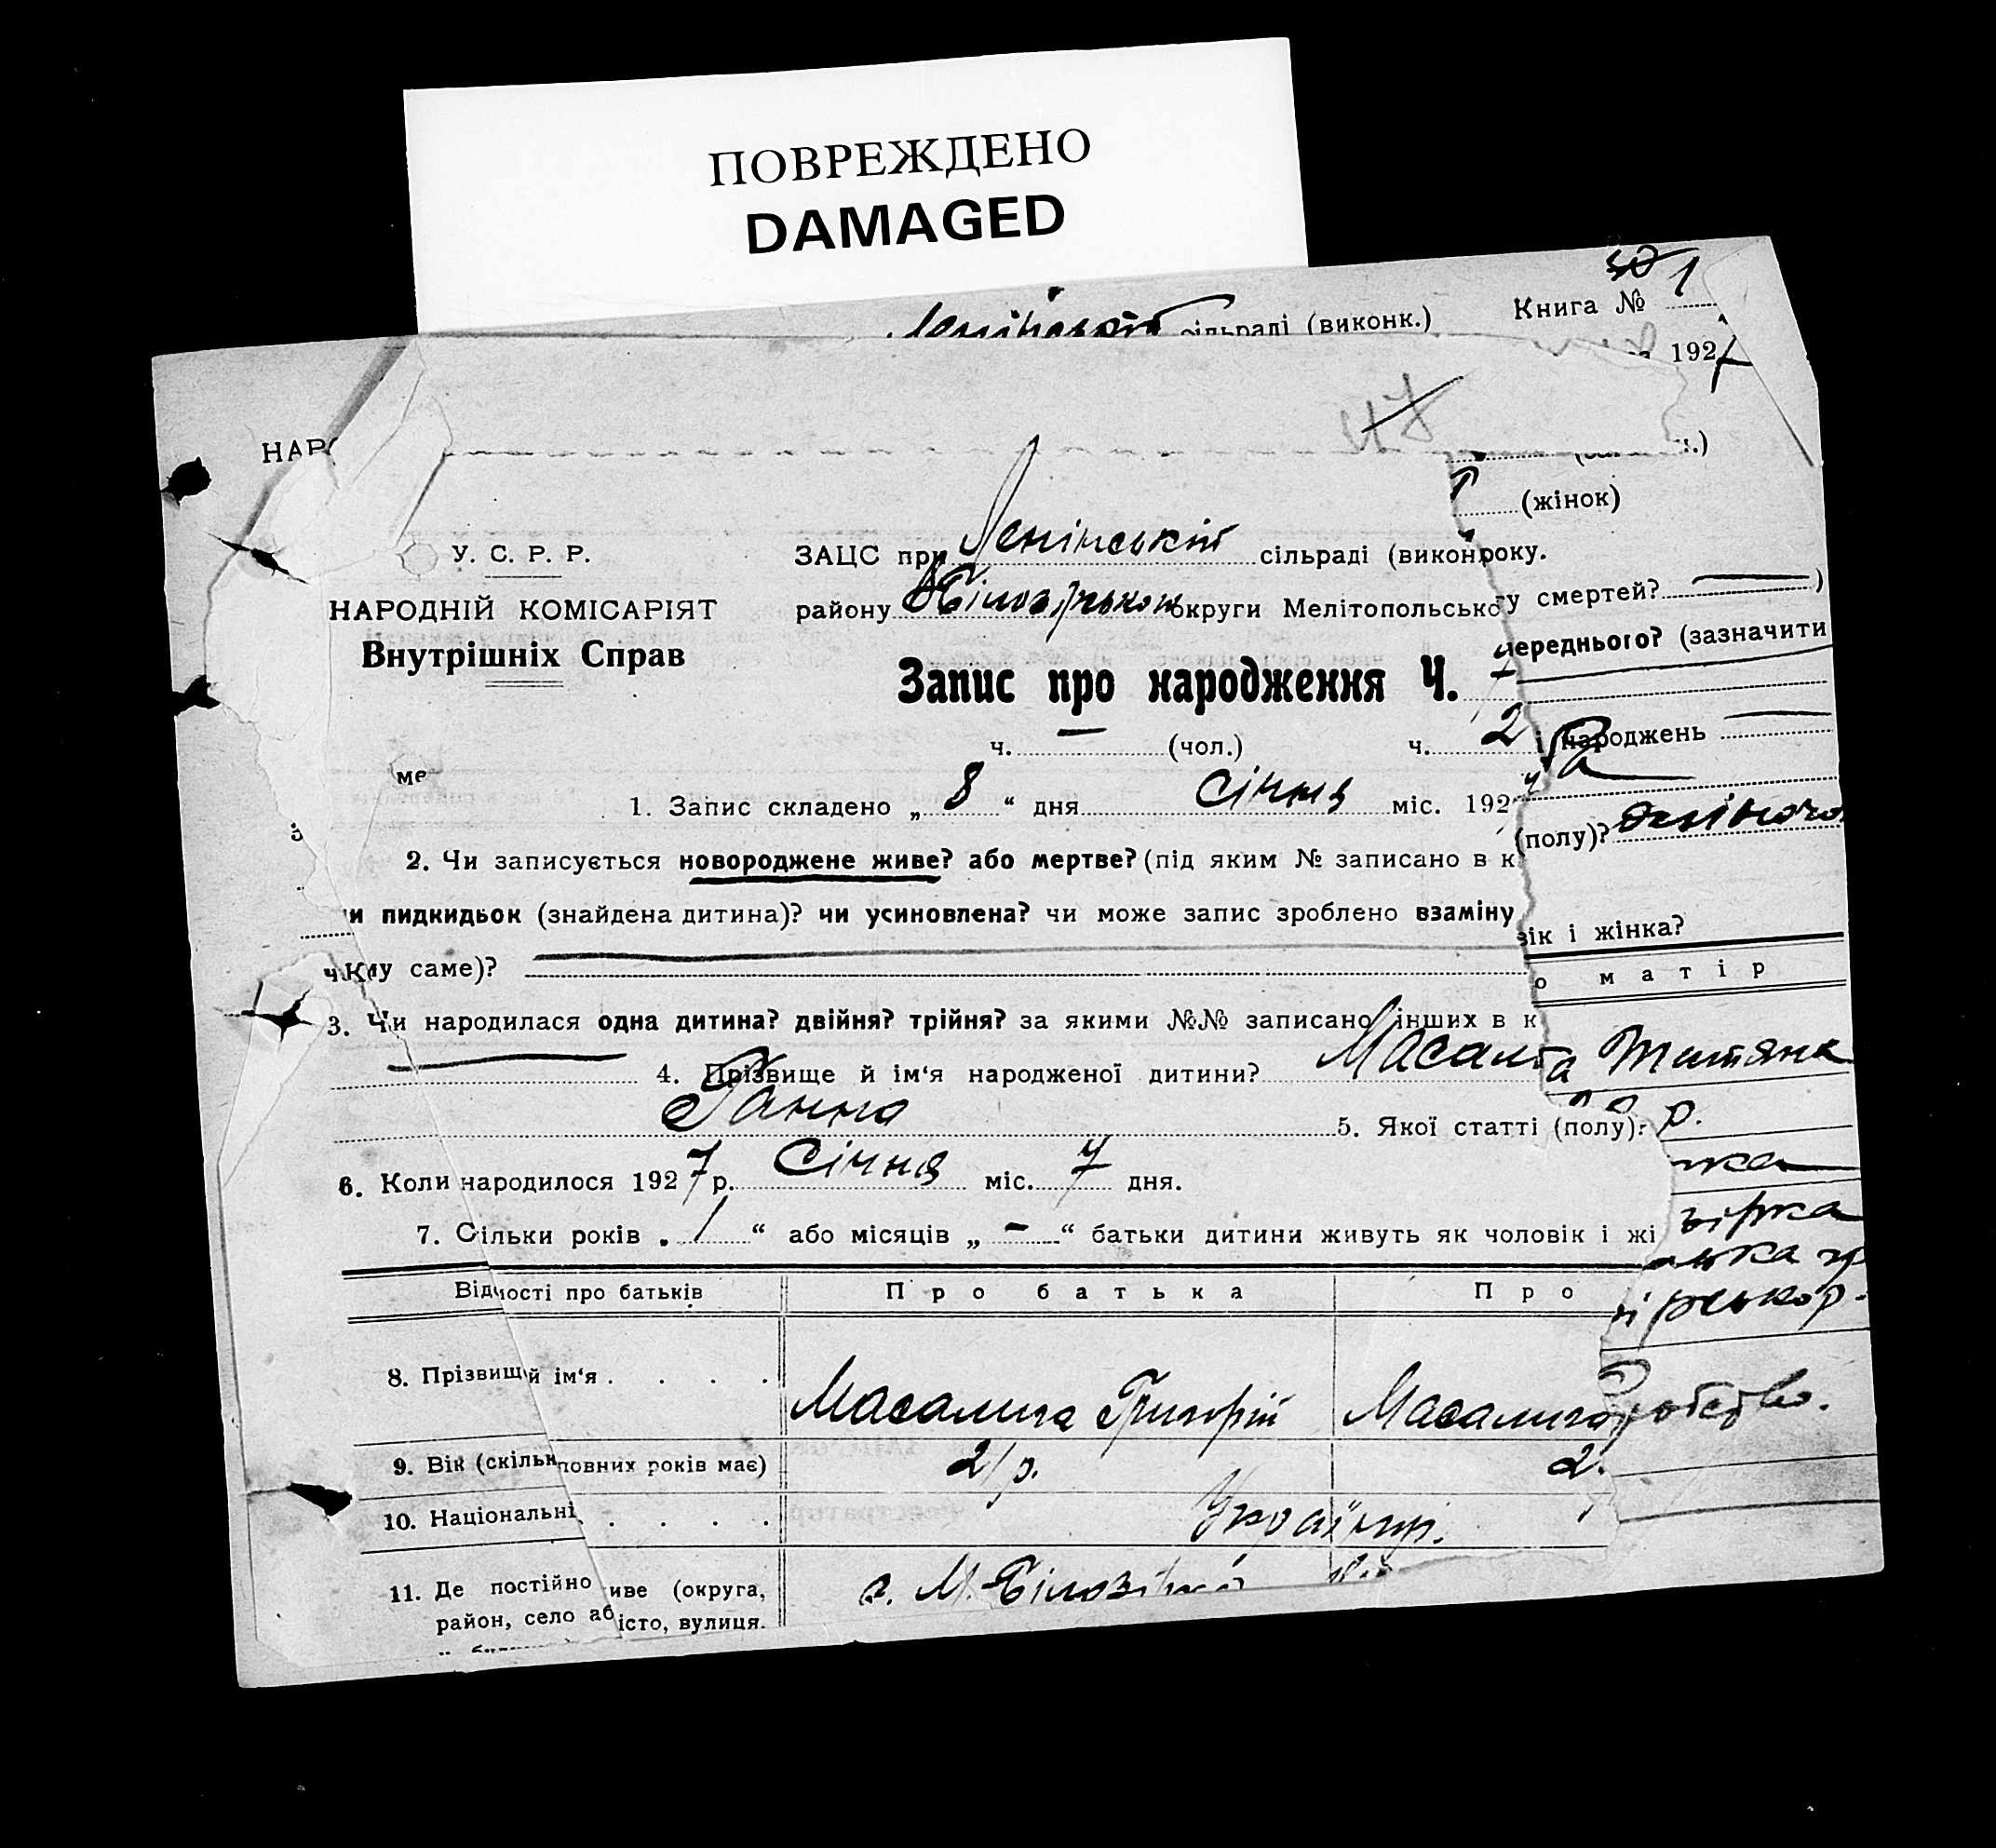 ПОВРЕЖДЕНО
DAMAGED
Ленінській сільраді (виконк.) Книга № 1
192
47
НАР
(жінок)
У. С. Р. Р. ЗАЦС при Ленінській сільраді (викон року.
НАРОДНІЙ КОМІСАРІЯТ району Білозірської округи Мелітопольсько у смертей? — )
Внутрішніх Справ переднього? (зазначити
Запис про народження Ч.
ч. — (чол.) ч. 2 народжень —
ме
1. Запис складено „ 8 “ дня Січня міс. 192
(полу)?
2. Чи записується новороджене живе? або мертве? (під яким № записано в к
и пидкидьок (знайдена дитина)? чи усиновлена? чи може запис зроблено взаміну
вік і жінка?
чому саме)?
о матір
3. Чи народилася одна дитина? двійня? трійня? за якими №№ записано інших в к
4. Прізвище й ім‘я народженої дитини? Масал
а Титяна
Ганна 5. Якої статті (полу)?
р.
6. Коли народилося 1927 р. Січня міс. 7 дня.
7. Сільки років „ 1 “ або місяців „ – “ батьки дитини живуть як чоловік і жі
Відомості про батьків Про батька Про
8. Прізвище й ім‘я . . . . Масалига Григорій Масалига
9. Вік (скільки повних років має) 21 р. 2
10. Національні . . . . Українці.
11. Де постійно живе (округа, с. М. Білозірка
район, село або місто, вулиця.